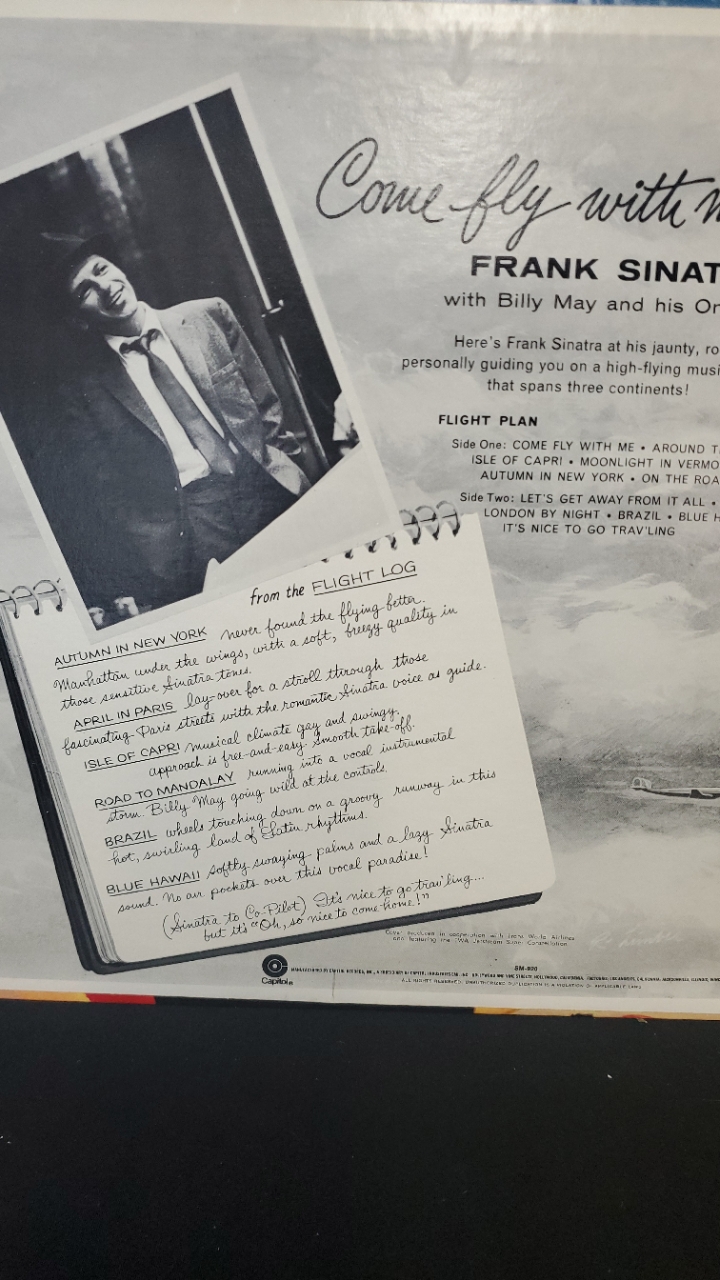 Come fly with m
FRANK SINAT
with Billy May and his Or
Here's Frank Sinatra at his jaunty, ro
personally guiding you on a high-flying musi
that spans three continents!
FLIGHT PLAN
Side One: COME FLY WITH ME • AROUND T
ISLE OF CAPRI • MOONLIGHT IN VERMO
AUTUMN IN NEW YORK • ON THE ROA
Side Two: LET'S GET AWAY FROM IT ALL •
LONDON BY NIGHT • BRAZIL • BLUE H
IT'S NICE TO GO TRAV'LING
from the FLIGHT LOG
AUTUMN IN NEW YORK never found the flying better.
Manhattan under the wings, with a soft, breezy quality in
those sensitive Sinatra tones.
APRIL IN PARIS lay-over for a stroll through those
fascinating Paris streets with the romantic Sinatra voice as guide.
ISLE OF CAPRI musical climate gay and swingy,
approach is free-and-easy. Smooth take-off.
ROAD TO MANDALAY running into a vocal instrumental
storm. Billy May going wild at the controls.
BRAZIL wheels touching down on a groovy runway in this
hot, swirling land of Latin rhythms.
BLUE HAWAII softly swaying palms and a lazy Sinatra
sound. No air pockets over this vocal paradise!
(Sinatra to Co-Pilot) It's nice to go trav'ling...
but it's "Oh, so nice to come home!"
Cover produced in cooperation with Trans World Airlines
and featuring the TWA Jetstream Super Constellation
Capitol®
MANUFACTURED BY CAPITOL RECORDS, INC.,
SM-920
ALL RIGHTS RESERVED. UNAUTHORIZED DUPLICATION IS A VIOLATION OF APPLICABLE LAWS